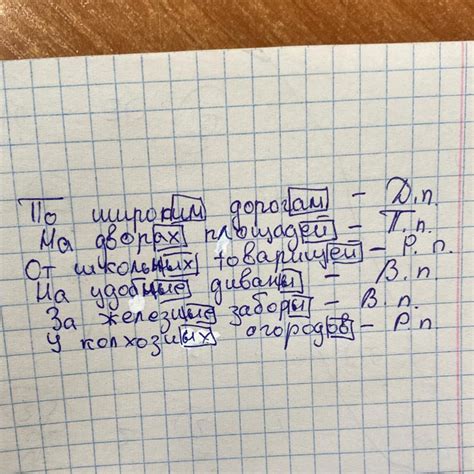 По широким дорогам - Д.п.
На дворах площадей - П.п.
От школьных товарищей - Р.п.
На удобные диваны - В.п.
За железные заборы - В.п.
У колхозных огородов - Р.п.